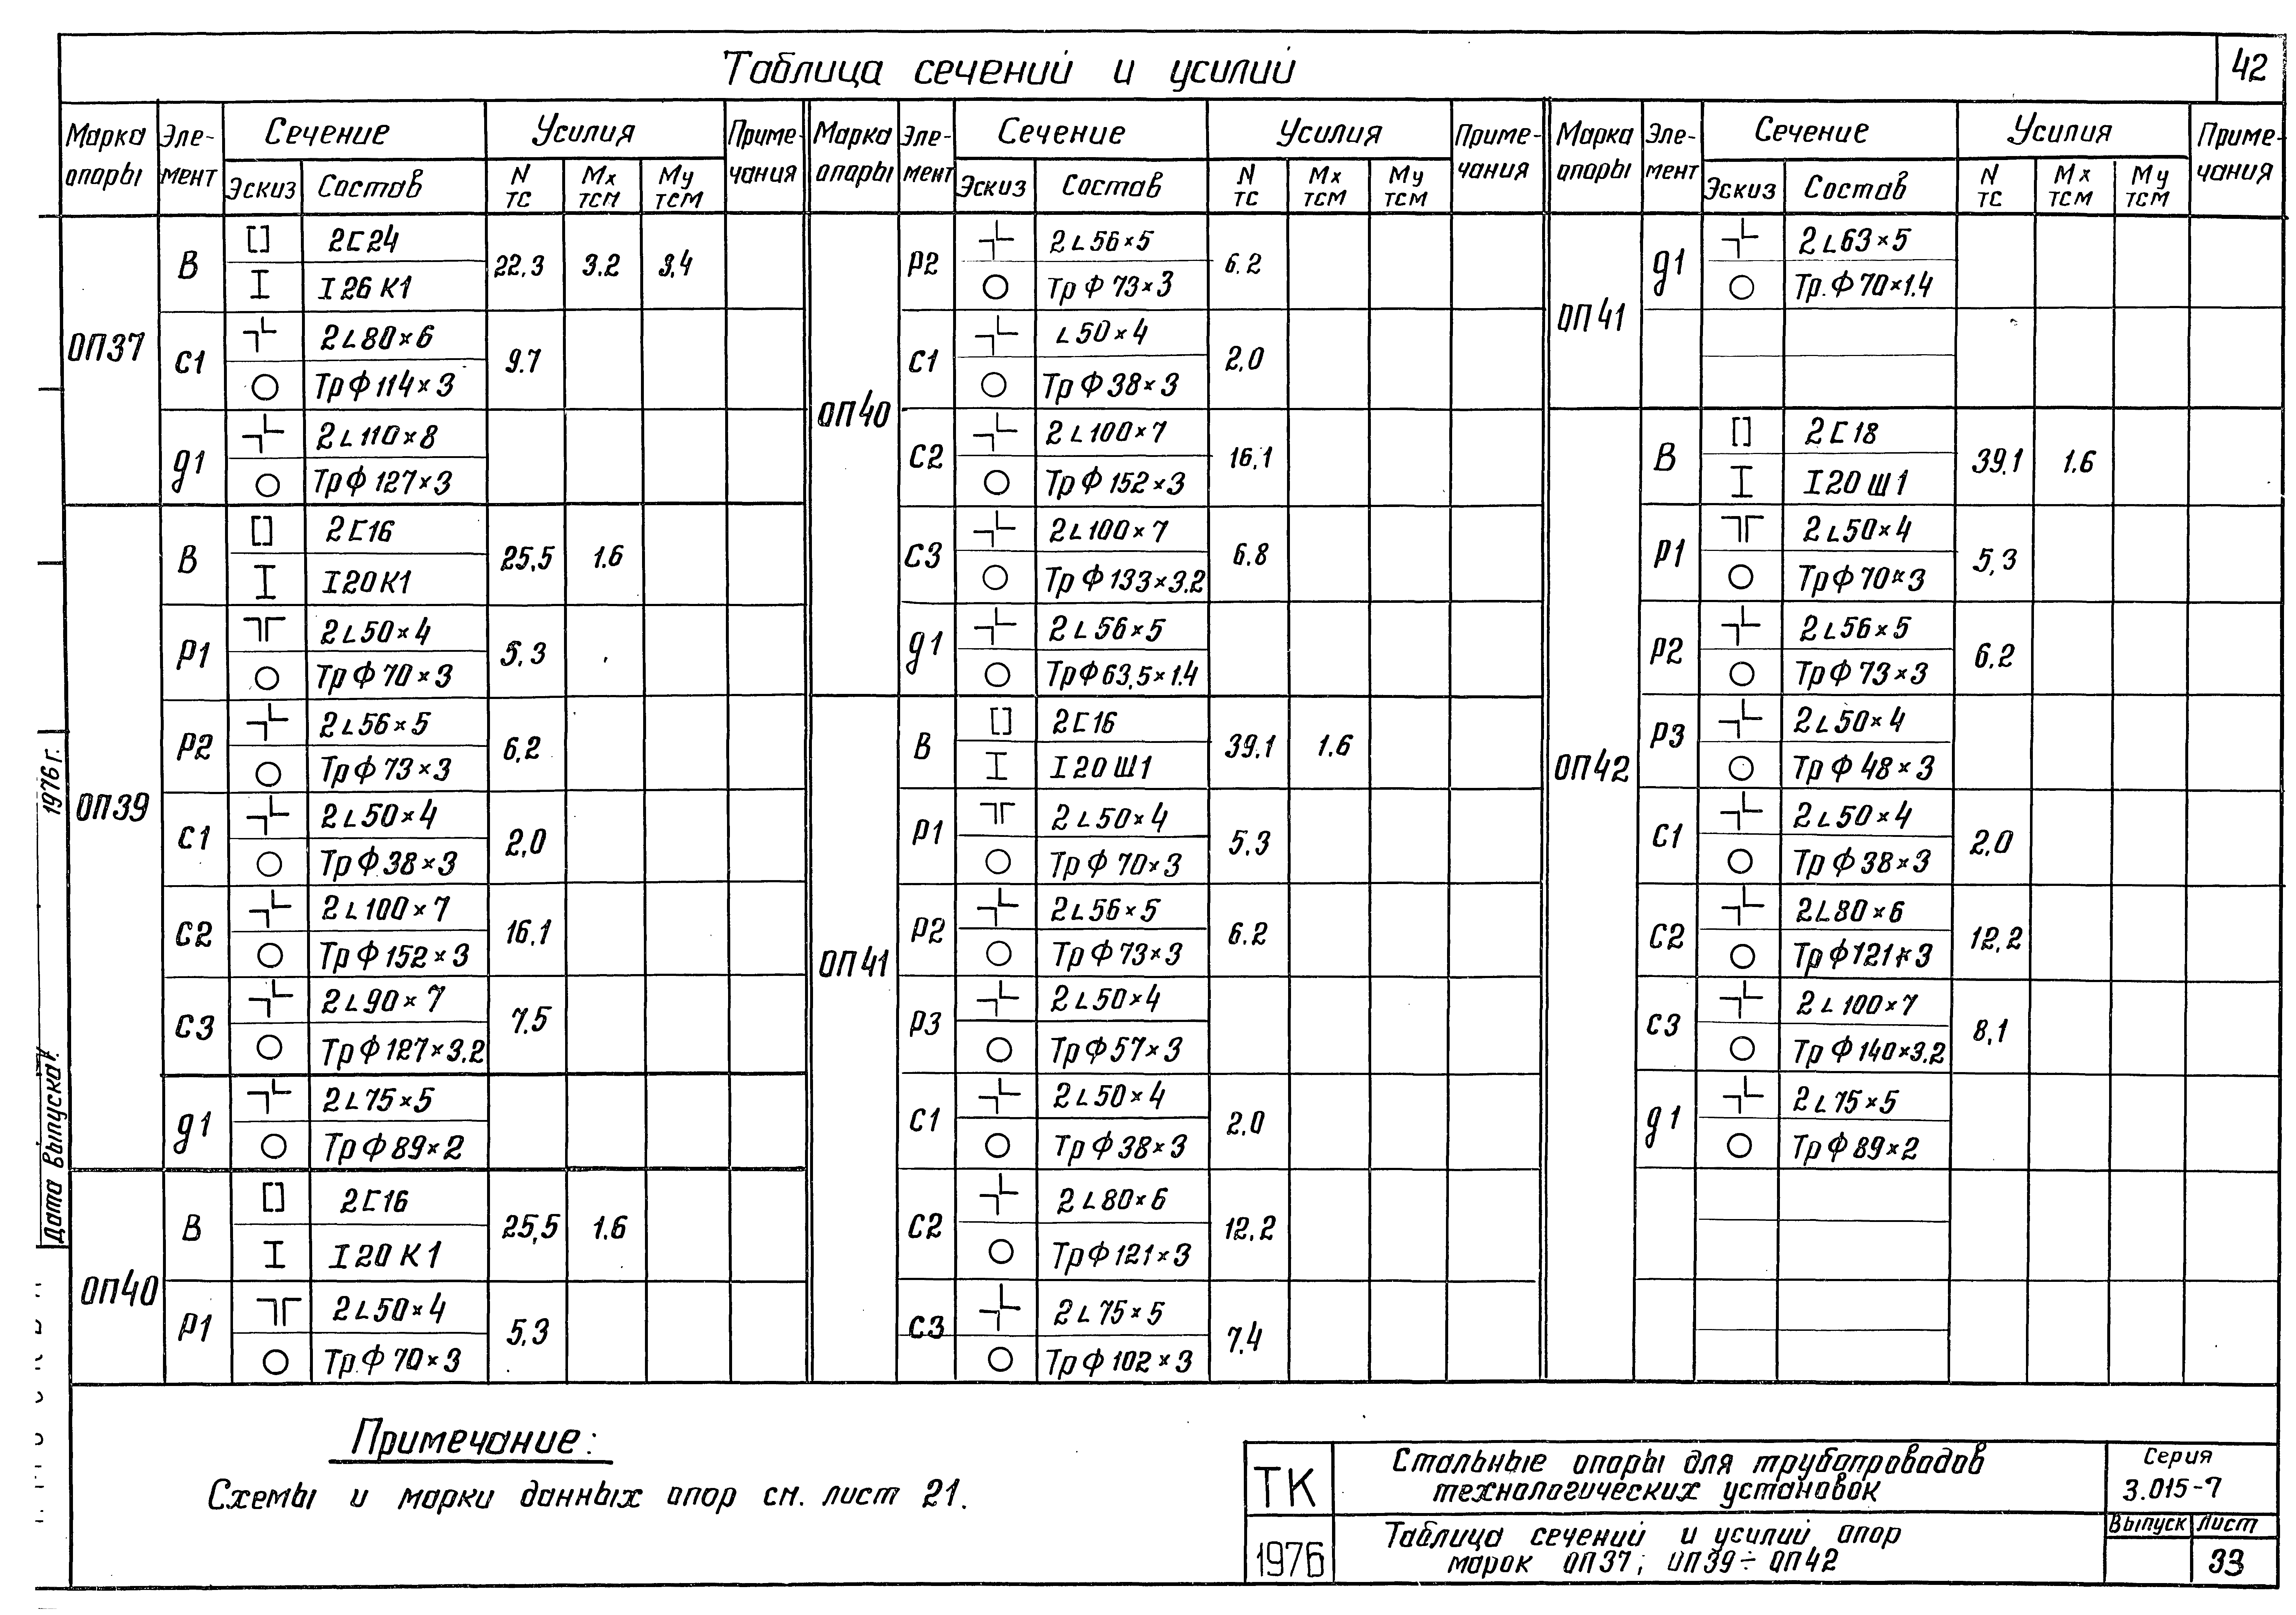 Таблица сечений и усилий
42
Марка опоры | Элемент | Сечение | Усилия | Примечания
Эскиз | Состав | N тс | Mx тсм | My тсм
ОП37
В | 2[24 | 22,3 | 3.2 | 3,4
I 26 К1
С1 | 2∟80×6 | 9.7
Тр Ф 114×3
д1 | 2∟110×8
Тр Ф 127×3
ОП39
В | 2[16 | 25,5 | 1.6
I 20 К1
Р1 | 2∟50×4 | 5,3
Тр Ф 70×3
Р2 | 2∟56×5 | 6,2
Тр Ф 73×3
С1 | 2∟50×4 | 2,0
Тр Ф 38×3
С2 | 2∟100×7 | 16,1
Тр Ф 152×3
С3 | 2∟90×7 | 7.5
Тр Ф 127×3.2
д1 | 2∟75×5
Тр Ф 89×2
ОП40
В | 2[16 | 25,5 | 1.6
I 20 К1
Р1 | 2∟50×4 | 5,3
Тр. Ф 70×3
Марка опоры | Элемент | Сечение | Усилия | Примечания
Эскиз | Состав | N тс | Mx тсм | My тсм
ОП40
Р2 | 2∟56×5 | 6.2
Тр Ф 73×3
С1 | ∟50×4 | 2,0
Тр Ф 38×3
С2 | 2∟100×7 | 16,1
Тр Ф 152×3
С3 | 2∟100×7 | 6.8
Тр Ф 133×3.2
д1 | 2∟56×5
Тр Ф 63,5×1.4
ОП41
В | 2[16 | 39.1 | 1.6
I 20 Ш1
Р1 | 2∟50×4 | 5.3
Тр Ф 70×3
Р2 | 2∟56×5 | 6.2
Тр Ф 73×3
Р3 | 2∟50×4
Тр Ф 57×3
С1 | 2∟50×4 | 2.0
Тр Ф 38×3
С2 | 2∟80×6 | 12,2
Тр Ф 121×3
С3 | 2∟75×5 | 7,4
Тр Ф 102×3
Марка опоры | Элемент | Сечение | Усилия | Примечания
Эскиз | Состав | N тс | Mx тсм | My тсм
ОП41
д1 | 2∟63×5
Тр. Ф 70×1.4
ОП42
В | 2[18 | 39,1 | 1.6
I 20 Ш1
Р1 | 2∟50×4 | 5,3
Тр Ф 70×3
Р2 | 2∟56×5 | 6,2
Тр Ф 73×3
Р3 | 2∟50×4
Тр Ф 48×3
С1 | 2∟50×4 | 2,0
Тр Ф 38×3
С2 | 2∟80×6 | 12,2
Тр Ф 121×3
С3 | 2∟100×7 | 8,1
Тр Ф 140×3.2
д1 | 2∟75×5
Тр Ф 89×2
Дата выпуска: 1976 г.
Примечание:
Схемы и марки данных опор см. лист 21.
ТК
1976
Стальные опоры для трубопроводов
технологических установок
Таблица сечений и усилий опор
марок ОП37; ОП39÷ОП42
Серия
3.015-7
Выпуск | Лист
33